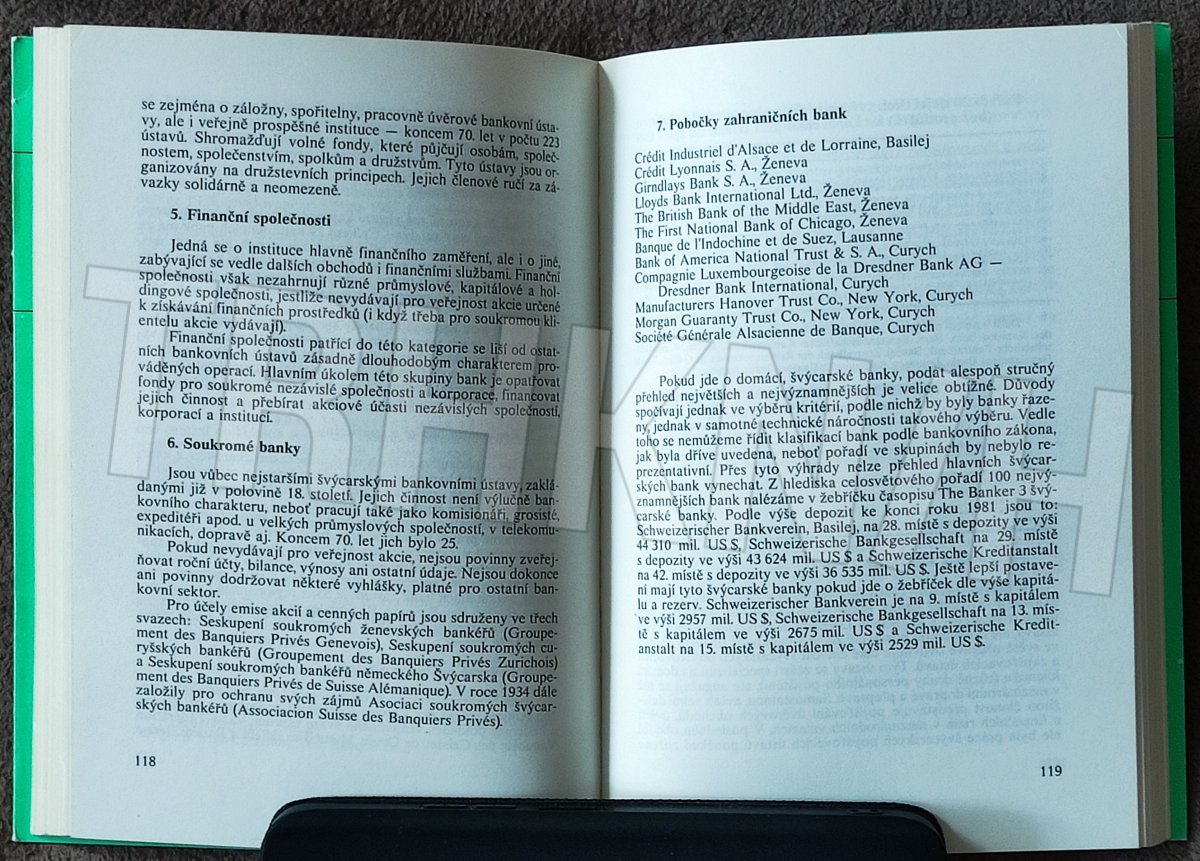 se zejména o záložny, spořitelny, pracovně úvěrové bankovní ústa-
vy, ale i veřejně prospěšné instituce — koncem 70. let v počtu 223
ústavů. Shromažďují volné fondy, které půjčují osobám, společ-
nostem, společenstvím, spolkům a družstvům. Tyto ústavy jsou or-
ganizovány na družstevních principech. Jejich členové ručí za zá-
vazky solidárně a neomezeně.
5. Finanční společnosti
Jedná se o instituce hlavně finančního zaměření, ale i o jiné,
zabývající se vedle dalších obchodů i finančními službami. Finanční
společnosti však nezahrnují různé průmyslové, kapitálové a hol-
dingové společnosti, jestliže nevydávají pro veřejnost akcie určené
k získávání finančních prostředků (i když třeba pro soukromou kli-
entelu akcie vydávají).
Finanční společnosti patřící do této kategorie se liší od ostat-
ních bankovních ústavů zásadně dlouhodobým charakterem pro-
váděných operací. Hlavním úkolem této skupiny bank je opatřovat
fondy pro soukromé nezávislé společnosti a korporace, financovat
jejich činnost a přebírat akciové účasti nezávislých společností,
korporací a institucí.
6. Soukromé banky
Jsou vůbec nejstaršími švýcarskými bankovními ústavy, zaklá-
danými již v polovině 18. století. Jejich činnost není výlučně ban-
kovního charakteru, neboť pracují také jako komisionáři, grosisté,
expeditéři apod. u velkých průmyslových společností, v telekomu-
nikacích, dopravě aj. Koncem 70. let jich bylo 25.
Pokud nevydávají pro veřejnost akcie, nejsou povinny zveřej-
ňovat roční účty, bilance, výnosy ani ostatní údaje. Nejsou dokonce
ani povinny dodržovat některé vyhlášky, platné pro ostatní ban-
kovní sektor.
Pro účely emise akcií a cenných papírů jsou sdruženy ve třech
svazech: Seskupení soukromých ženevských bankéřů (Groupe-
ment des Banquiers Privés Genevois), Seskupení soukromých cu-
ryšských bankéřů (Groupement des Banquiers Privés Zurichois)
a Seskupení soukromých bankéřů německého Švýcarska (Groupe-
ment des Banquiers Privés de Suisse Alémanique). V roce 1934 dále
založily pro ochranu svých zájmů Asociaci soukromých švýcar-
ských bankéřů (Associacion Suisse des Banquiers Privés).
118
7. Pobočky zahraničních bank
Crédit Industriel d'Alsace et de Lorraine, Basilej
Crédit Lyonnais S. A., Ženeva
Girndlays Bank S. A., Ženeva
Lloyds Bank International Ltd., Ženeva
The British Bank of the Middle East, Ženeva
The First National Bank of Chicago, Ženeva
Banque de l'Indochine et de Suez, Lausanne
Bank of America National Trust & S. A., Curych
Compagnie Luxembourgeoise de la Dresdner Bank AG —
Dresdner Bank International, Curych
Manufacturers Hanover Trust Co., New York, Curych
Morgan Guaranty Trust Co., New York, Curych
Société Générale Alsacienne de Banque, Curych
Pokud jde o domácí, švýcarské banky, podat alespoň stručný
přehled největších a nejvýznamnějších je velice obtížné. Důvody
spočívají jednak ve výběru kritérií, podle nichž by byly banky řaze-
ny, jednak v samotné technické náročnosti takového výběru. Vedle
toho se nemůžeme řídit klasifikací bank podle bankovního zákona,
jak byla dříve uvedena, neboť pořadí ve skupinách by nebylo re-
prezentativní. Přes tyto výhrady nelze přehled hlavních švýcar-
ských bank vynechat. Z hlediska celosvětového pořadí 100 nejvý-
znamnějších bank nalézáme v žebříčku časopisu The Banker 3 švý-
carské banky. Podle výše depozit ke konci roku 1981 jsou to:
Schweizerischer Bankverein, Basilej, na 28. místě s depozity ve výši
44 310 mil. US $, Schweizerische Bankgesellschaft na 29. místě
s depozity ve výši 43 624 mil. US $ a Schweizerische Kreditanstalt
na 42. místě s depozity ve výši 36 535 mil. US $. Ještě lepší postave-
ní mají tyto švýcarské banky pokud jde o žebříček dle výše kapitá-
lu a rezerv. Schweizerischer Bankverein je na 9. místě s kapitálem
ve výši 2957 mil. US $, Schweizerische Bankgesellschaft na 13. mís-
tě s kapitálem ve výši 2675 mil. US $ a Schweizerische Kredit-
anstalt na 15. místě s kapitálem ve výši 2529 mil. US $.
119
TRHKNIH